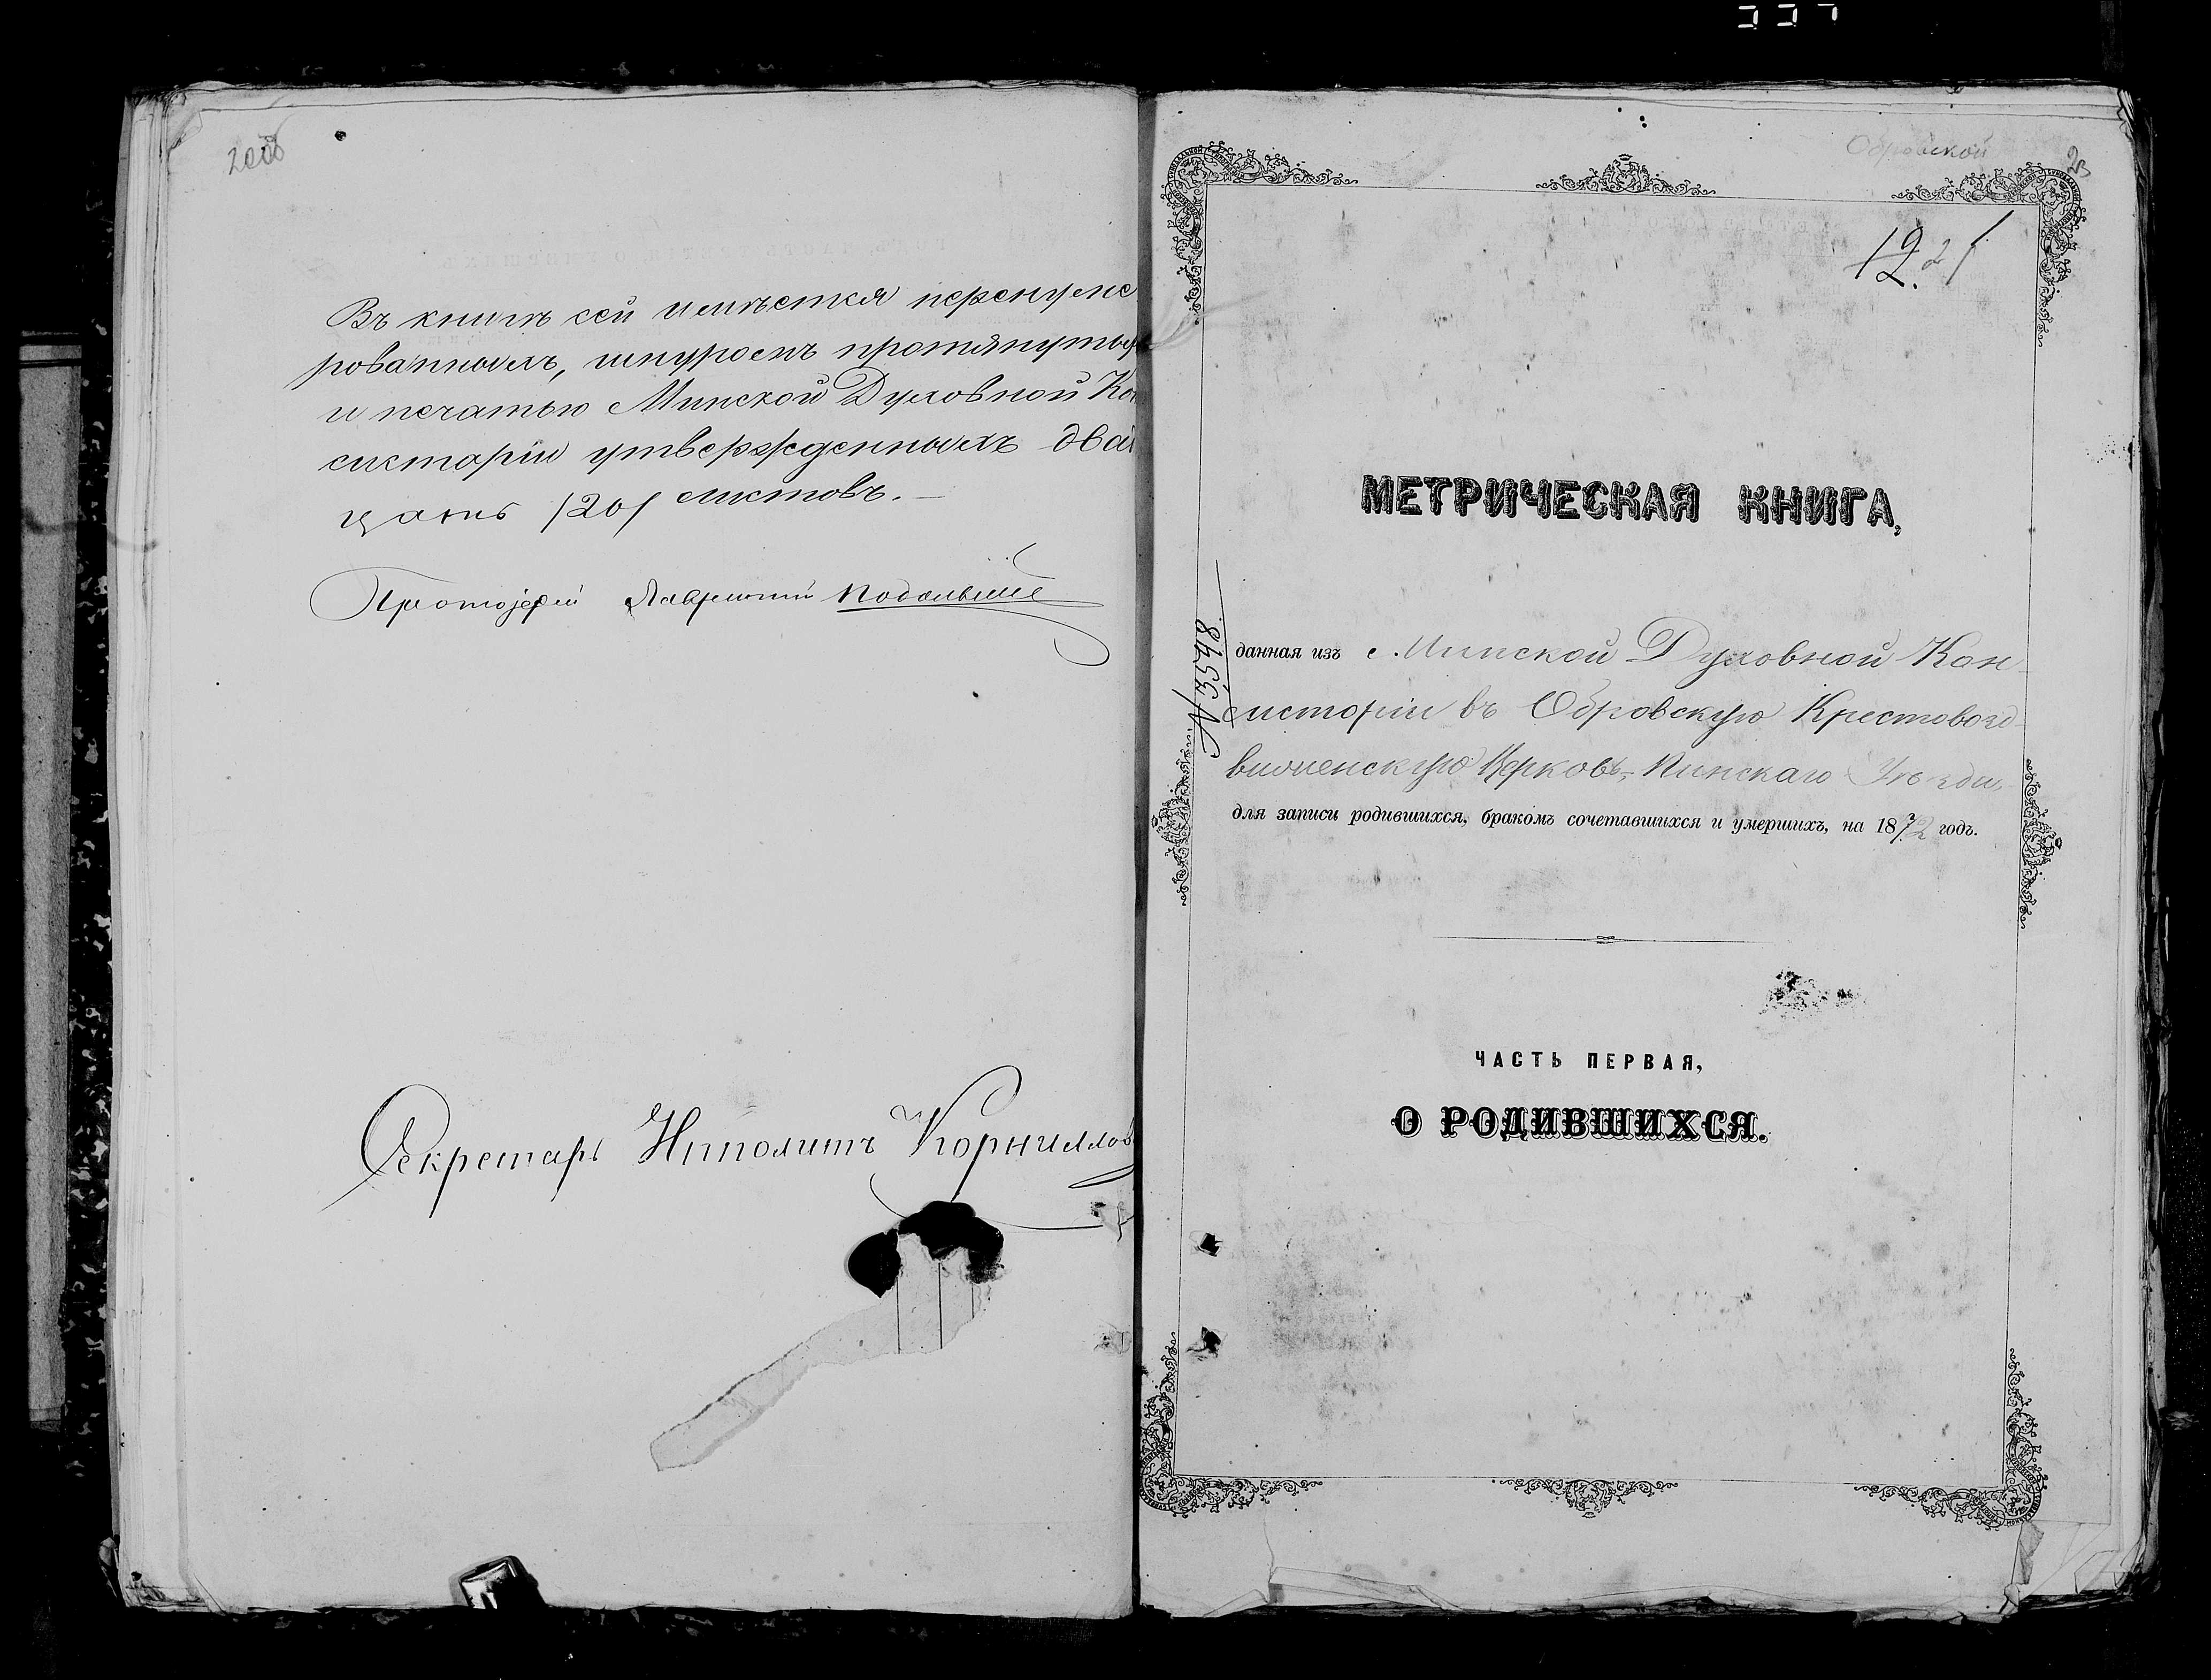 Въ книгѣ сей имѣется перенуме
рованныхъ, шнуромъ протянутых
и печатью Минской Духовной Кон
систоріи утвержденныхъ два
цать /20/ листовъ. —
Протоіерей Лаврентій
Секретарь Ипполитъ Корниллов
Обровской
12.
МЕТРИЧЕСКАЯ КНИГА,
№ 3548.
данная изъ Минской Духовной Кон
систоріи въ Обровскую Крестовозд
виженскую Церковь, Пинскаго Уѣзда,
для записи родившихся, бракомъ сочетавшихся и умершихъ, на 1872 годъ.
ЧАСТЬ ПЕРВАЯ,
О РОДИВШИХСЯ.